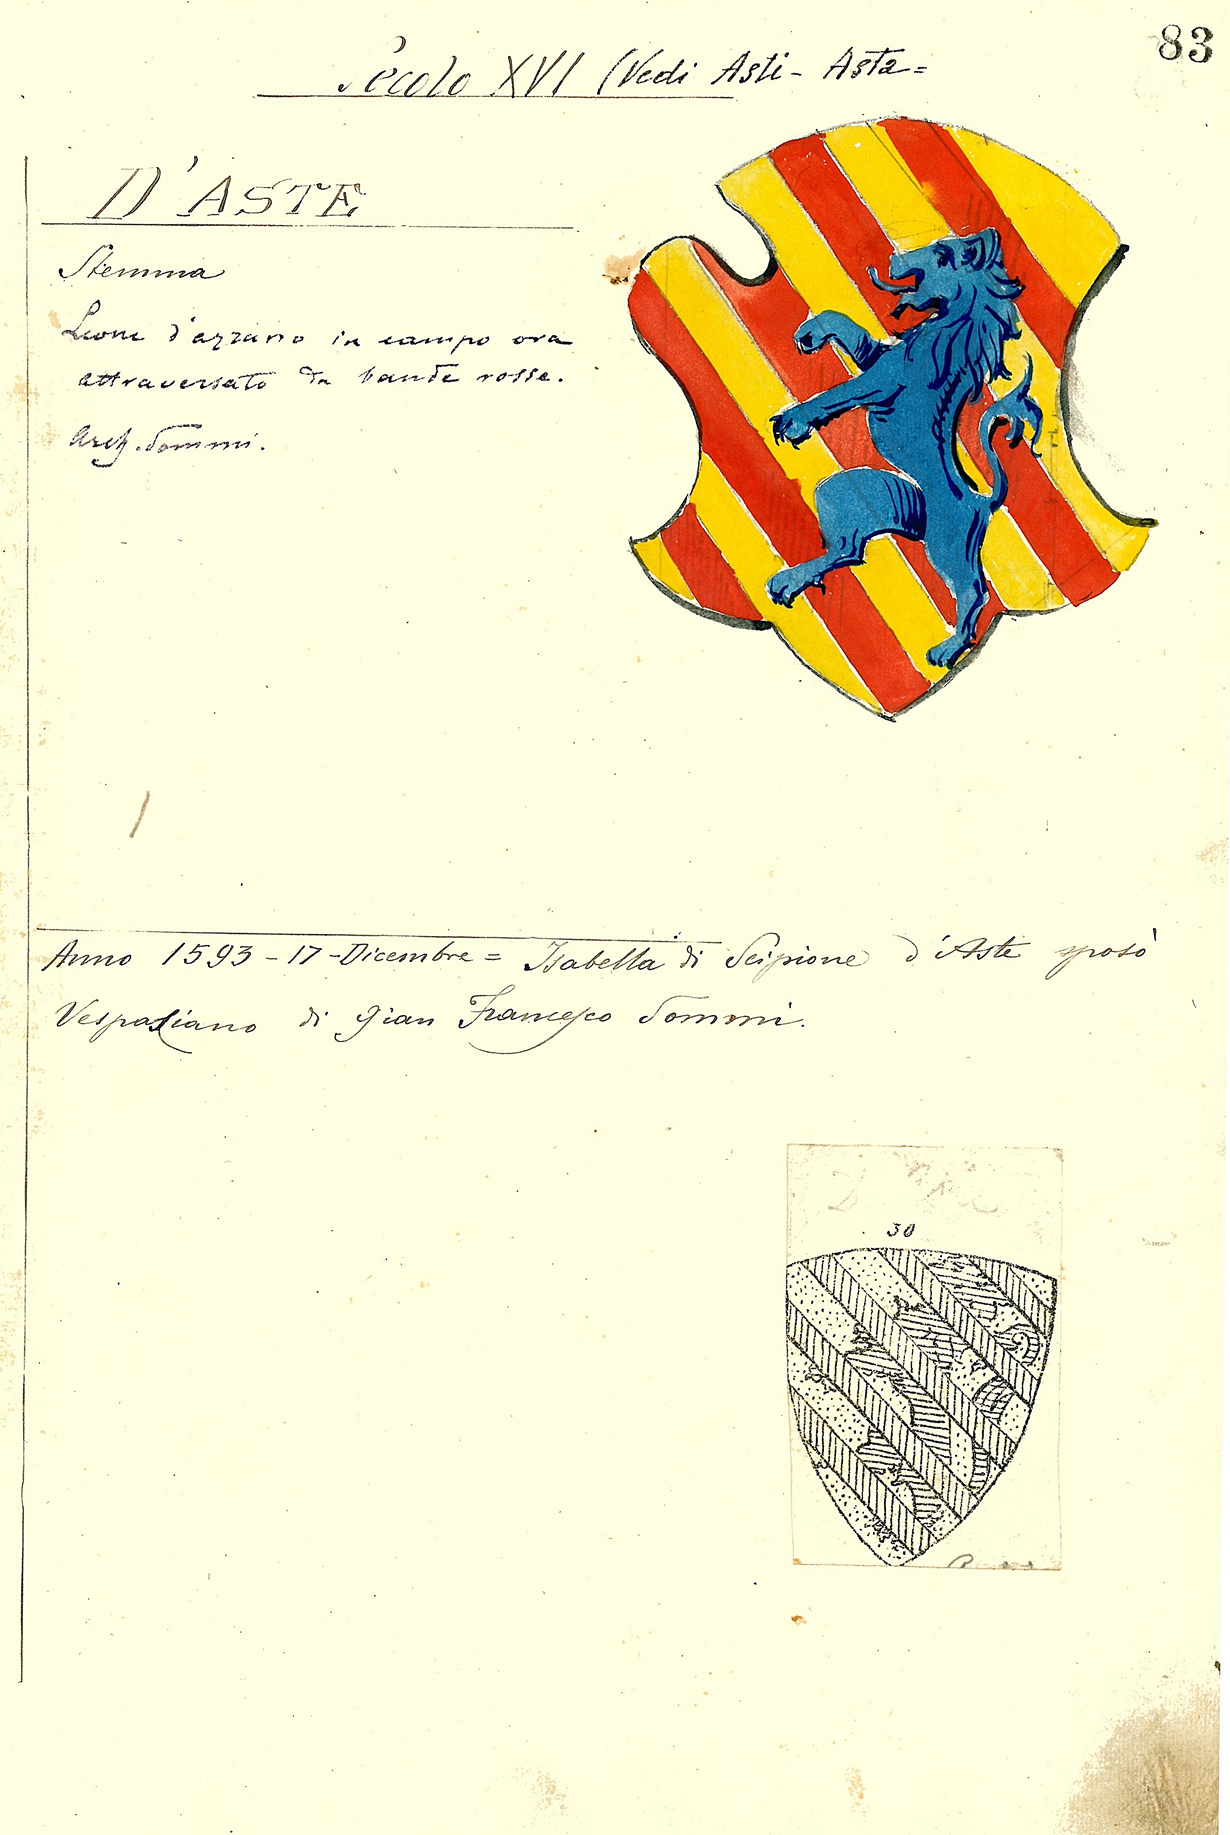 83
Secolo XVI (Vedi Asti - Asta =
D'ASTE
Stemma
Leone d'azzurro in campo oro
attraversato da bande rosse.
Arch. Sommi.
Anno 1593 - 17 - Dicembre = Isabella di Scipione d'Aste sposò
Vespasiano di Gian Francesco Sommi.
30